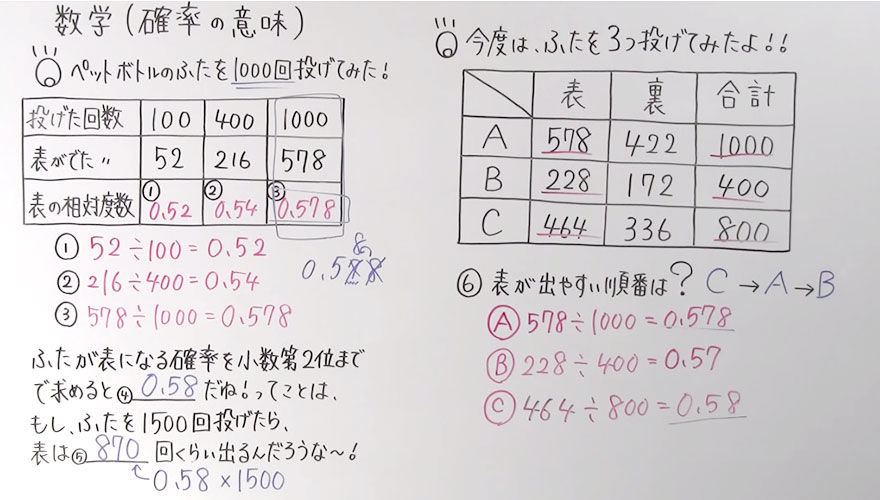 数学(確率の意味)
ペットボトルのふたを1000回投げてみた!
投げた回数 100 400 1000
表がでた〃 52 216 578
表の相対度数 ①0.52 ②0.54 ③0.578
① 52÷100=0.52
② 216÷400=0.54
③ 578÷1000=0.578
8
0.578
ふたが表になる確率を小数第2位まで
で求めると④0.58だね!ってことは、
もし、ふたを1500回投げたら、
表は⑤870回くらい出るんだろうな〜!
0.58×1500
今度は、ふたを3つ投げてみたよ!!
表 裏 合計
A 578 422 1000
B 228 172 400
C 464 336 800
⑥ 表が出やすい順番は? C→A→B
Ⓐ 578÷1000=0.578
Ⓑ 228÷400=0.57
Ⓒ 464÷800=0.58